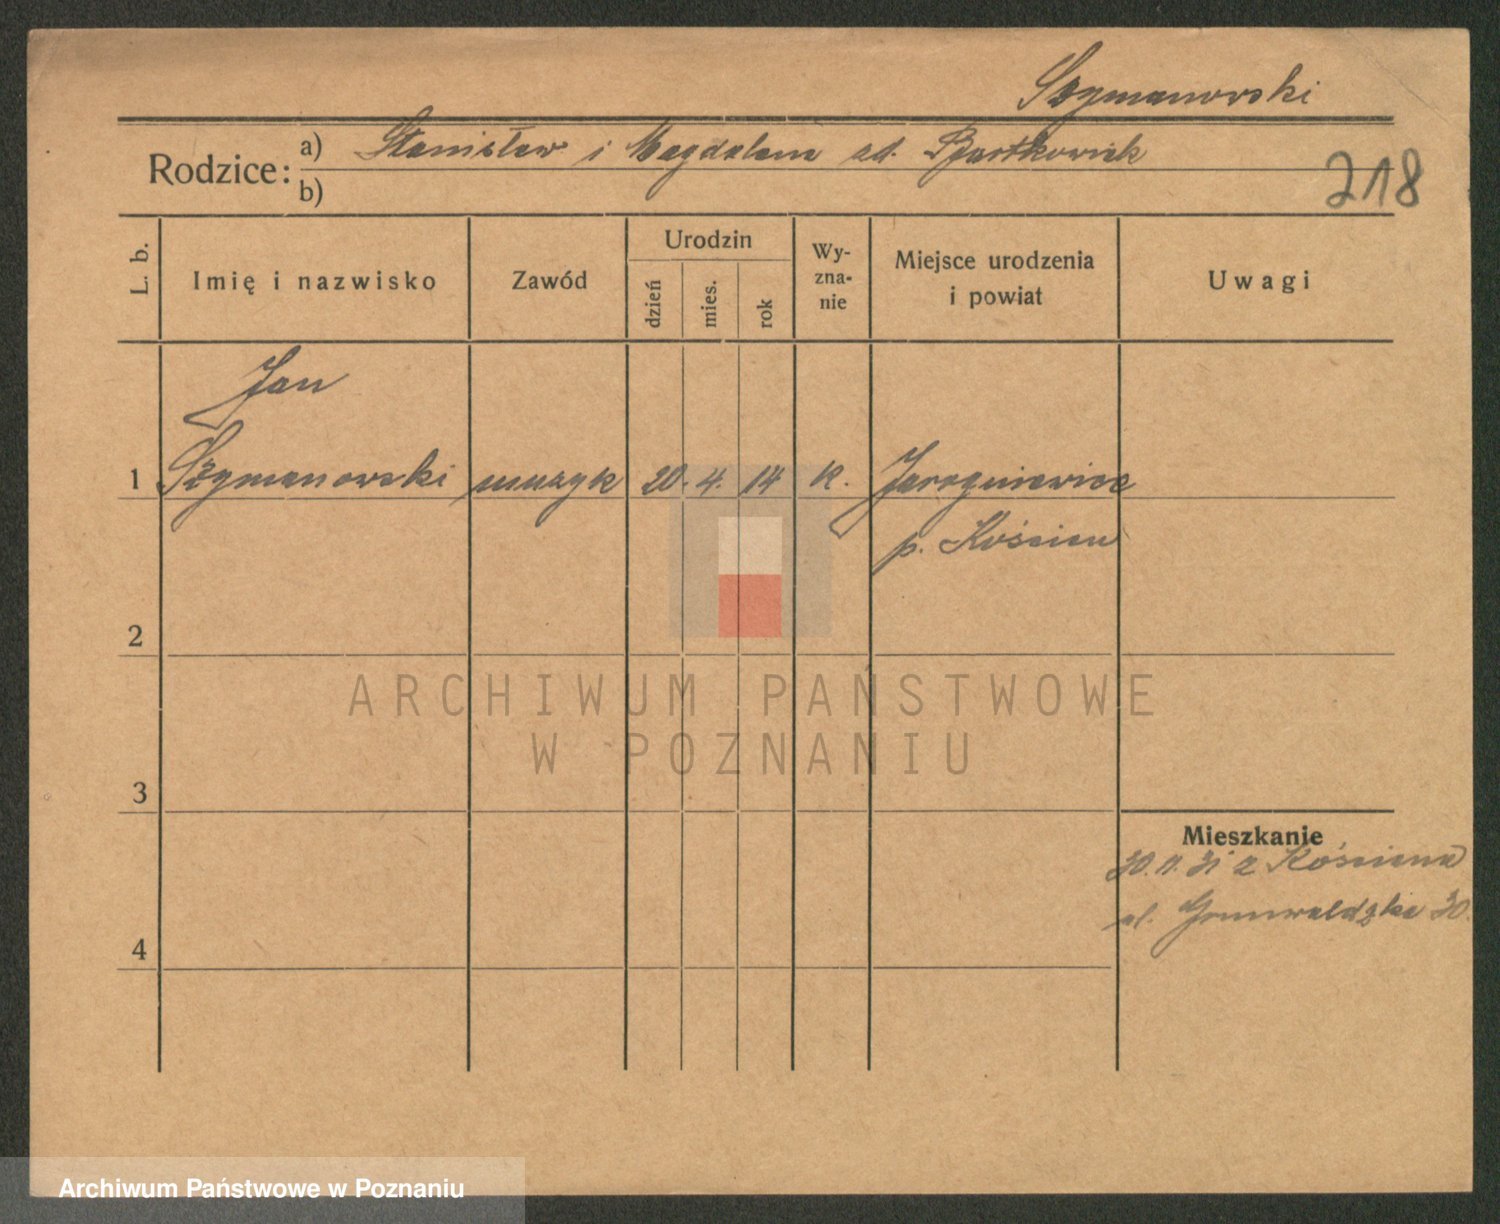 Szymanowski
Rodzice: a) Stanisław i Magdalena zd. Bartkowiak
b)
218
L. b.
Imię i nazwisko
Zawód
Urodzin
dzień
mies.
rok
Wy-
zna-
nie
Miejsce urodzenia
i powiat
Uwagi
Jan
1 Szymanowski muzyk 20. 4. 14 k. Jarogniewice
p. Kościan
2
ARCHIWUM PAŃSTWOWE
W POZNANIU
3
Mieszkanie
30.11.31 z Kościana
ul. Grunwaldzka 30.
4
Archiwum Państwowe w Poznaniu